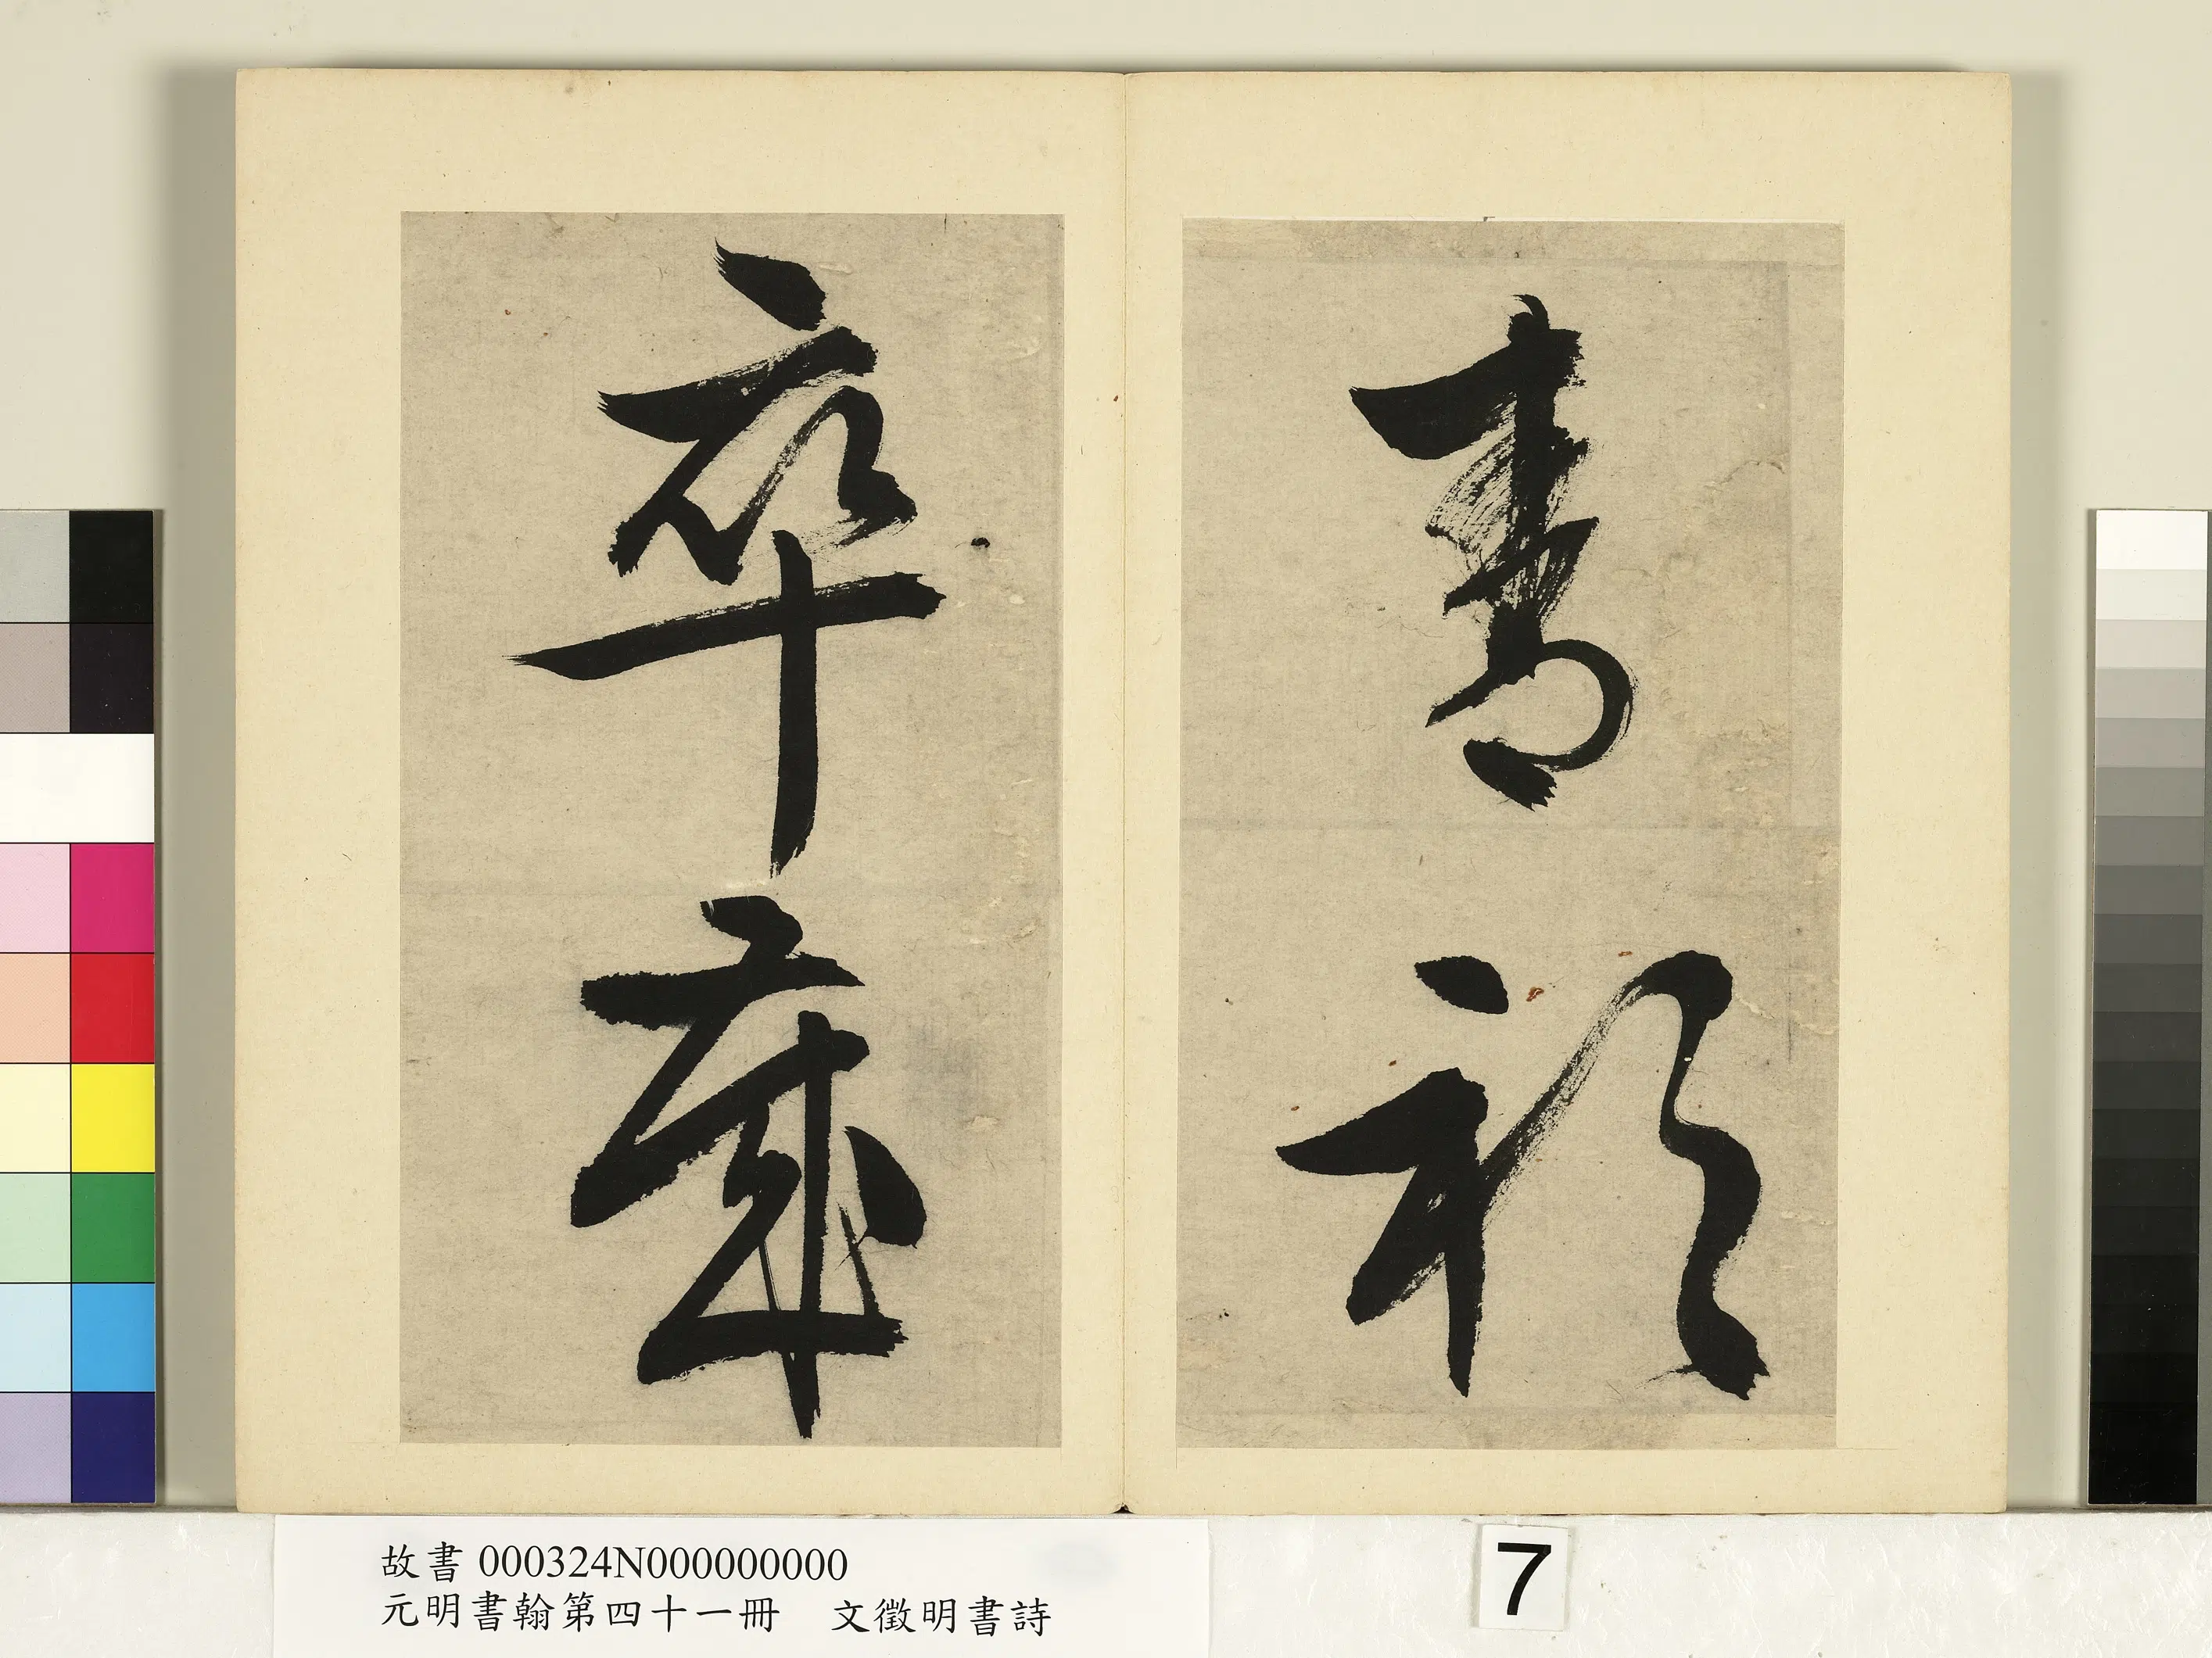 青衫
卒歲
故書 000324N000000000
元明書翰第四十一冊　文徵明書詩
7